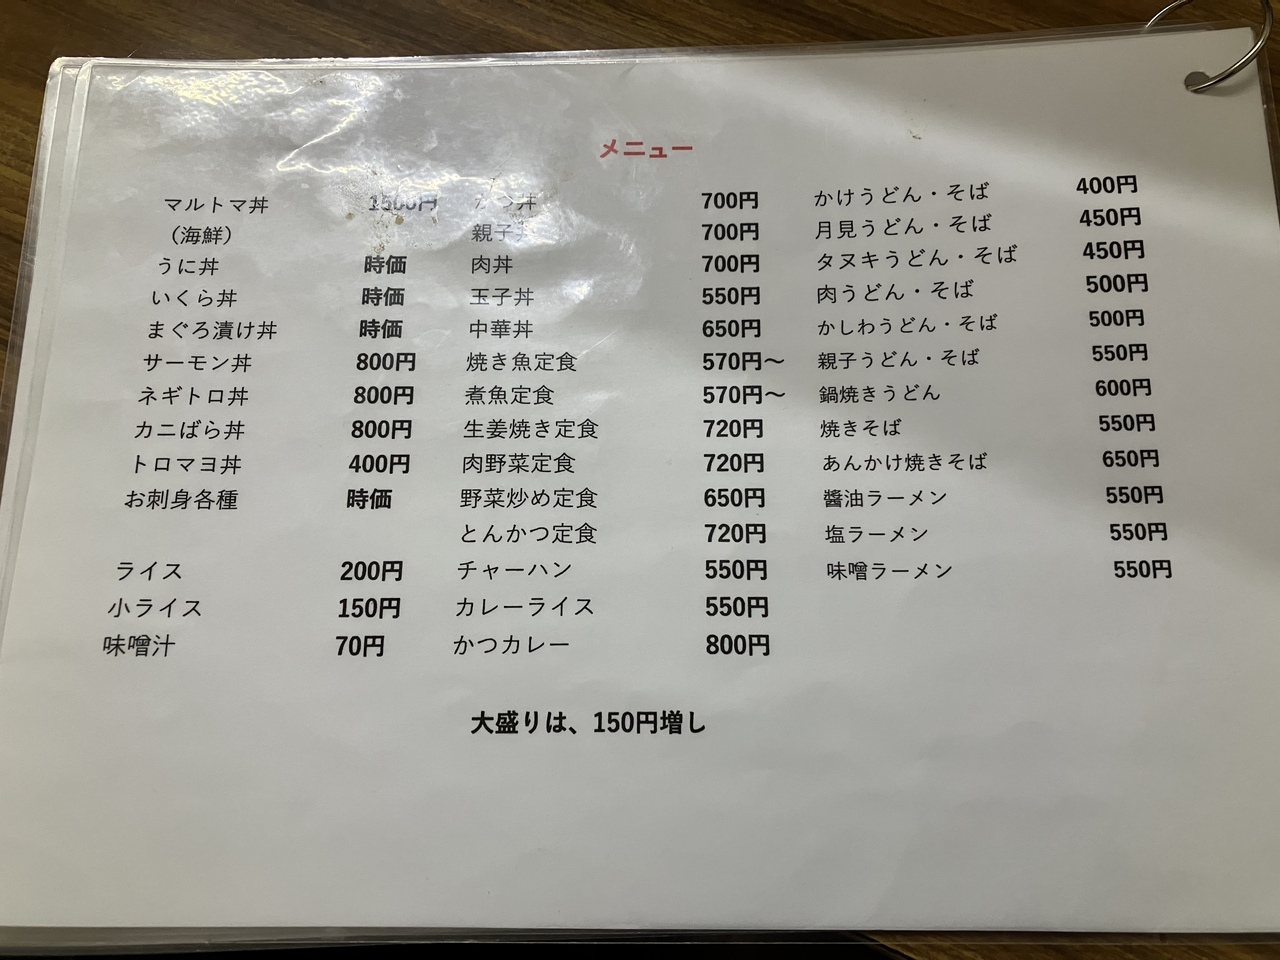 メニュー
マルトマ丼 1500円
（海鮮）
うに丼 時価
いくら丼 時価
まぐろ漬け丼 時価
サーモン丼 800円
ネギトロ丼 800円
カニばら丼 800円
トロマヨ丼 400円
お刺身各種 時価
ライス 200円
小ライス 150円
味噌汁 70円
かつ丼 700円
親子丼 700円
肉丼 700円
玉子丼 550円
中華丼 650円
焼き魚定食 570円～
煮魚定食 570円～
生姜焼き定食 720円
肉野菜定食 720円
野菜炒め定食 650円
とんかつ定食 720円
チャーハン 550円
カレーライス 550円
かつカレー 800円
かけうどん・そば 400円
月見うどん・そば 450円
タヌキうどん・そば 450円
肉うどん・そば 500円
かしわうどん・そば 500円
親子うどん・そば 550円
鍋焼きうどん 600円
焼きそば 550円
あんかけ焼きそば 650円
醬油ラーメン 550円
塩ラーメン 550円
味噌ラーメン 550円
大盛りは、150円増し